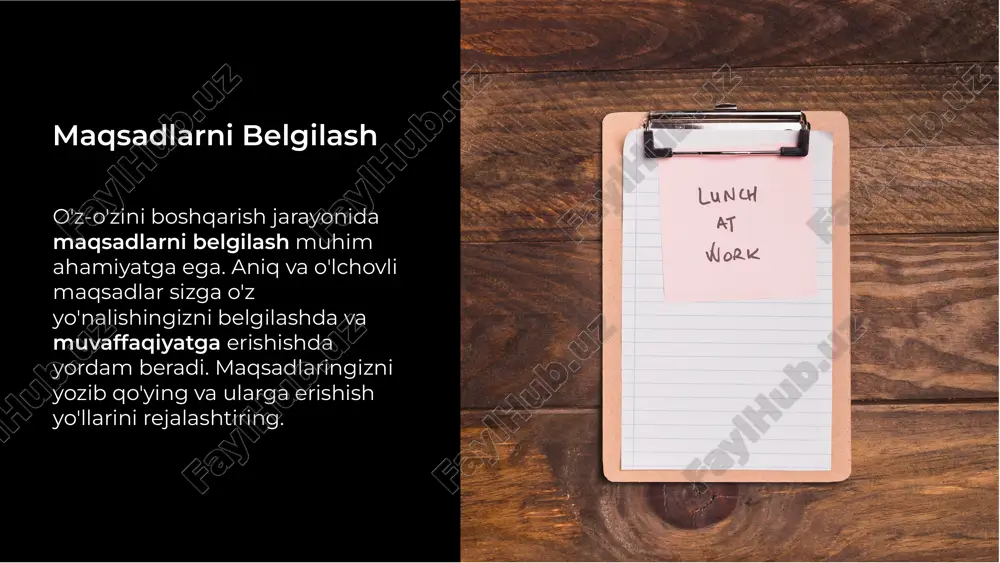 Maqsadlarni Belgilash
O'z-o'zini boshqarish jarayonida
maqsadlarni belgilash muhim
ahamiyatga ega. Aniq va o'lchovli
maqsadlar sizga o'z
yo'nalishingizni belgilashda va
muvaffaqiyatga erishishda
yordam beradi. Maqsadlaringizni
yozib qo'ying va ularga erishish
yo'llarini rejalashtiring.
LUNCH
AT
WORK
FaylHub.uz
FaylHub.uz
FaylHub.uz
FaylHub.uz
FaylHub.uz
FaylHub.uz
FaylHub.uz
FaylHub.uz